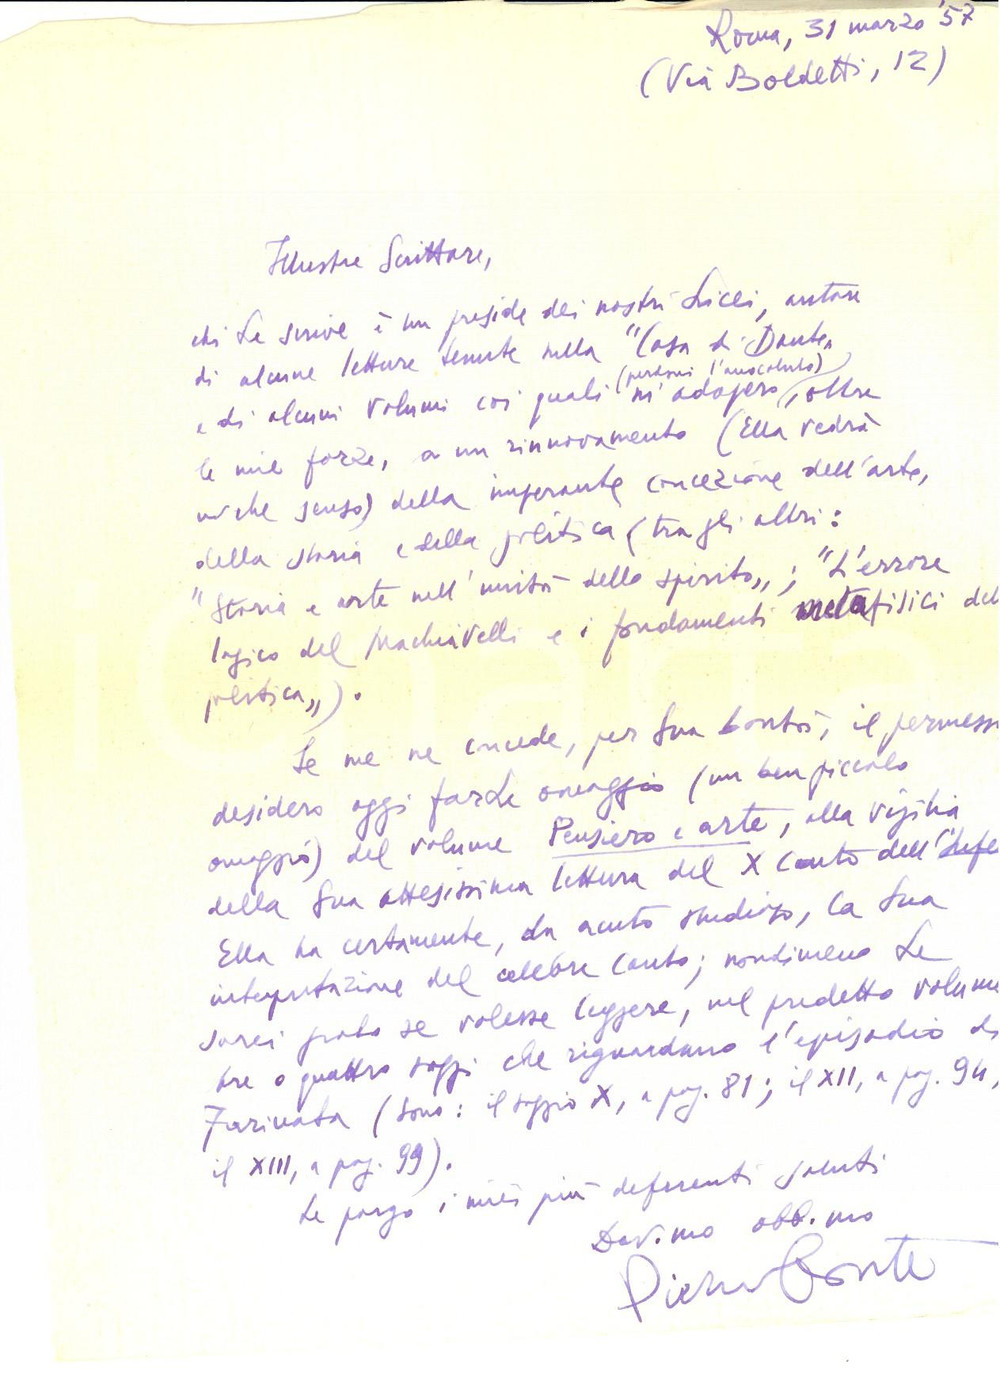 Roma, 31 marzo '57
(Via Boldetti, 12)
Illustre Scrittore,
chi Le scrive è un preside dei nostri Licei, autore
di alcune letture tenute nella "Casa di Dante„
e di alcuni volumi coi quali (perdoni l'inascoltato) m'adopero, oltre
le mie forze, a un rinnovamento (Ella vedrà
in che senso) della imperante concezione dell'arte,
della storia e della politica (tra gli altri:
"Storia e arte nell'unità dello spirito„; "L'errore
logico del Machiavelli e i fondamenti metafisici del
politica„).
Se me ne concede, per Sua bontà, il permess
desidero oggi farLe omaggio (un ben piccolo
omaggio) del volume Pensiero e arte, alla vigilia
della Sua attesissima lettura del X Canto dell'Infe
Ella ha certamente, da acuto studioso, la Sua
interpretazione del celebre Canto; nondimeno Le
sarei grato se volesse leggere, nel predetto volume
tre o quattro saggi che riguardano l'episodio di
Farinata (sono: il saggio X, a pag. 81; il XII, a pag. 94,
il XIII, a pag. 99).
Le porgo i miei più deferenti saluti
Dev.mo obb.mo
Pietro Conte